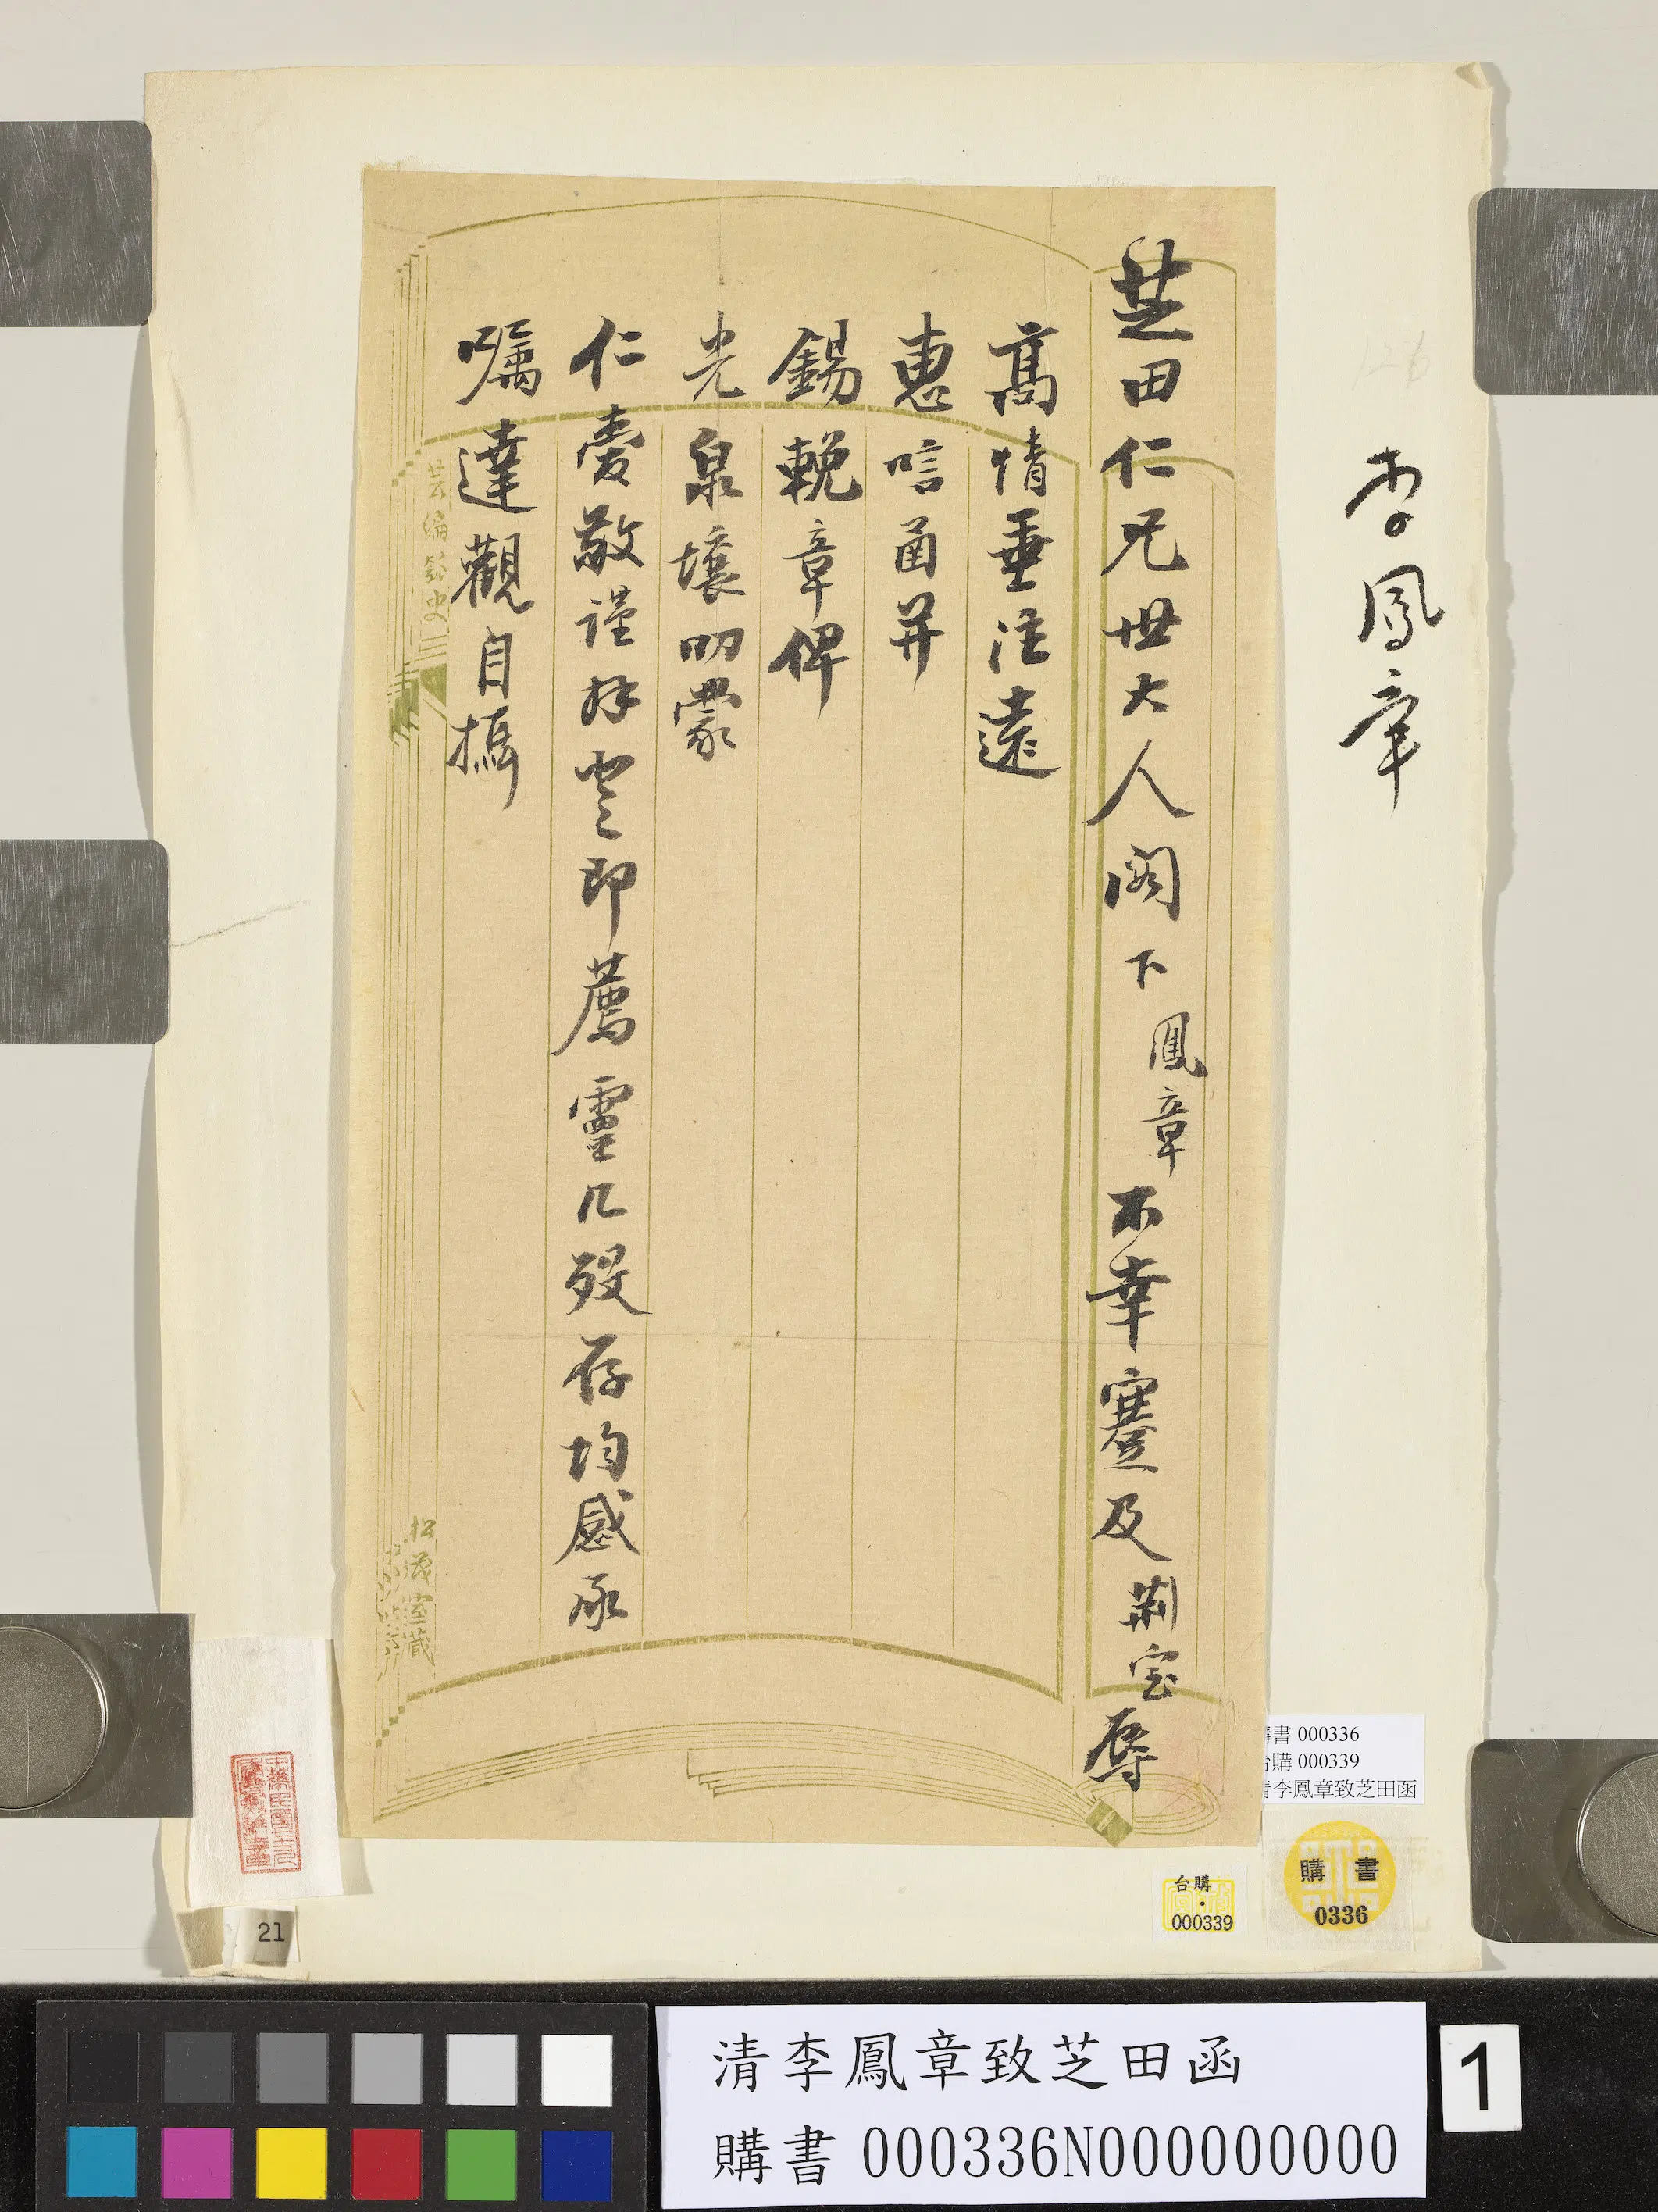 李鳳章
芝田仁兄世大人閣下鳳章不幸蹇及荊室辱
高情垂注遠
惠唁函并
錫輓章俾
光泉壤叨蒙
仁愛敬謹拜登即薦靈几歿存均感承
囑達觀自攝
芸編
松茂室藏
購書 000336
台購 000339
清李鳳章致芝田函
台購
000339
購書
0336
21
清李鳳章致芝田函
購書 000336N000000000
1